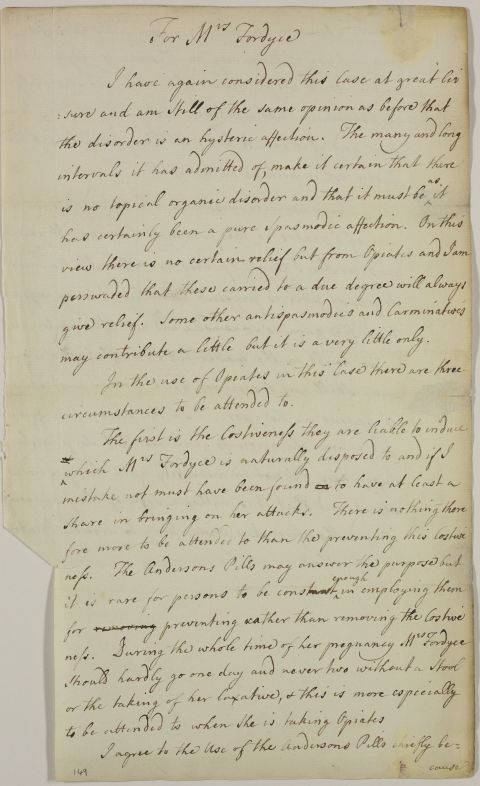 For Mrs Fordyce
I have again considered this Case at great Lei
:sure and am still of the same opinion as before that
the disorder is an hysteric affection. The many and long
intervals it has admitted of, make it certain that there
is no topical organic disorder and that it must be as it
has certainly been a pure spasmodic affection. On this
view there is no certain relief but from Opiates and I am
perswaded that these carried to a due degree will always
give relief. Some other antispasmodics and Carminatives
may contribute a little but it is a very little only.
In the use of Opiates in this Case there are three
circumstances to be attended to.
The first is the Costiveness they are liable to induce
which Mrs Fordyce is naturally disposed to and if I
mistake not must have been found to have at least a
share in bringing on her attacks. There is nothing there
fore more to be attended to than the preventing this Costive
ness. The Andersons Pills may answer the purpose but
it is rare for persons to be constant enough in employing them
for removing preventing rather than removing the Costive
ness. During the whole time of her pregnancy Mrs Fordyce
should hardly go one day and never two without a Stool
or the taking of her laxative, & this is more especially
to be attended to when she is taking Opiates
I agree to the Use of the Andersons Pills chiefly be=
cause
149